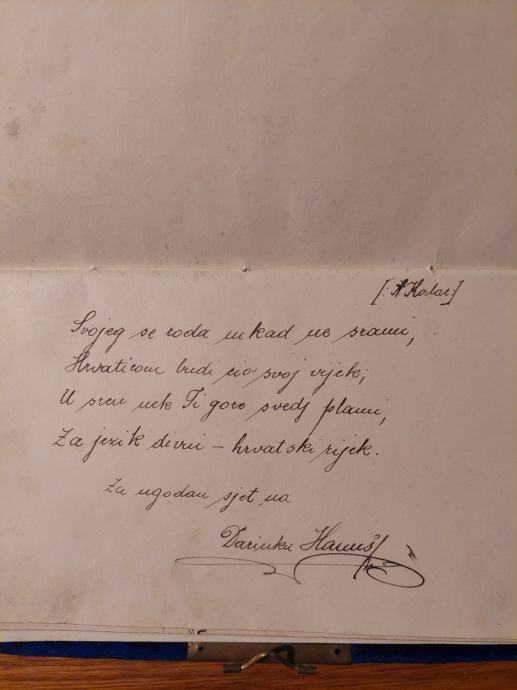 [: A Kalac]
Svojeg se roda nikad ne srami,
Hrvaticom budi cio svoj vijek;
U srcu nek Ti gore svedj plami,
Za jezik divni – hrvatski rijek.
Za ugodan sjet na
Darinku Hanuš